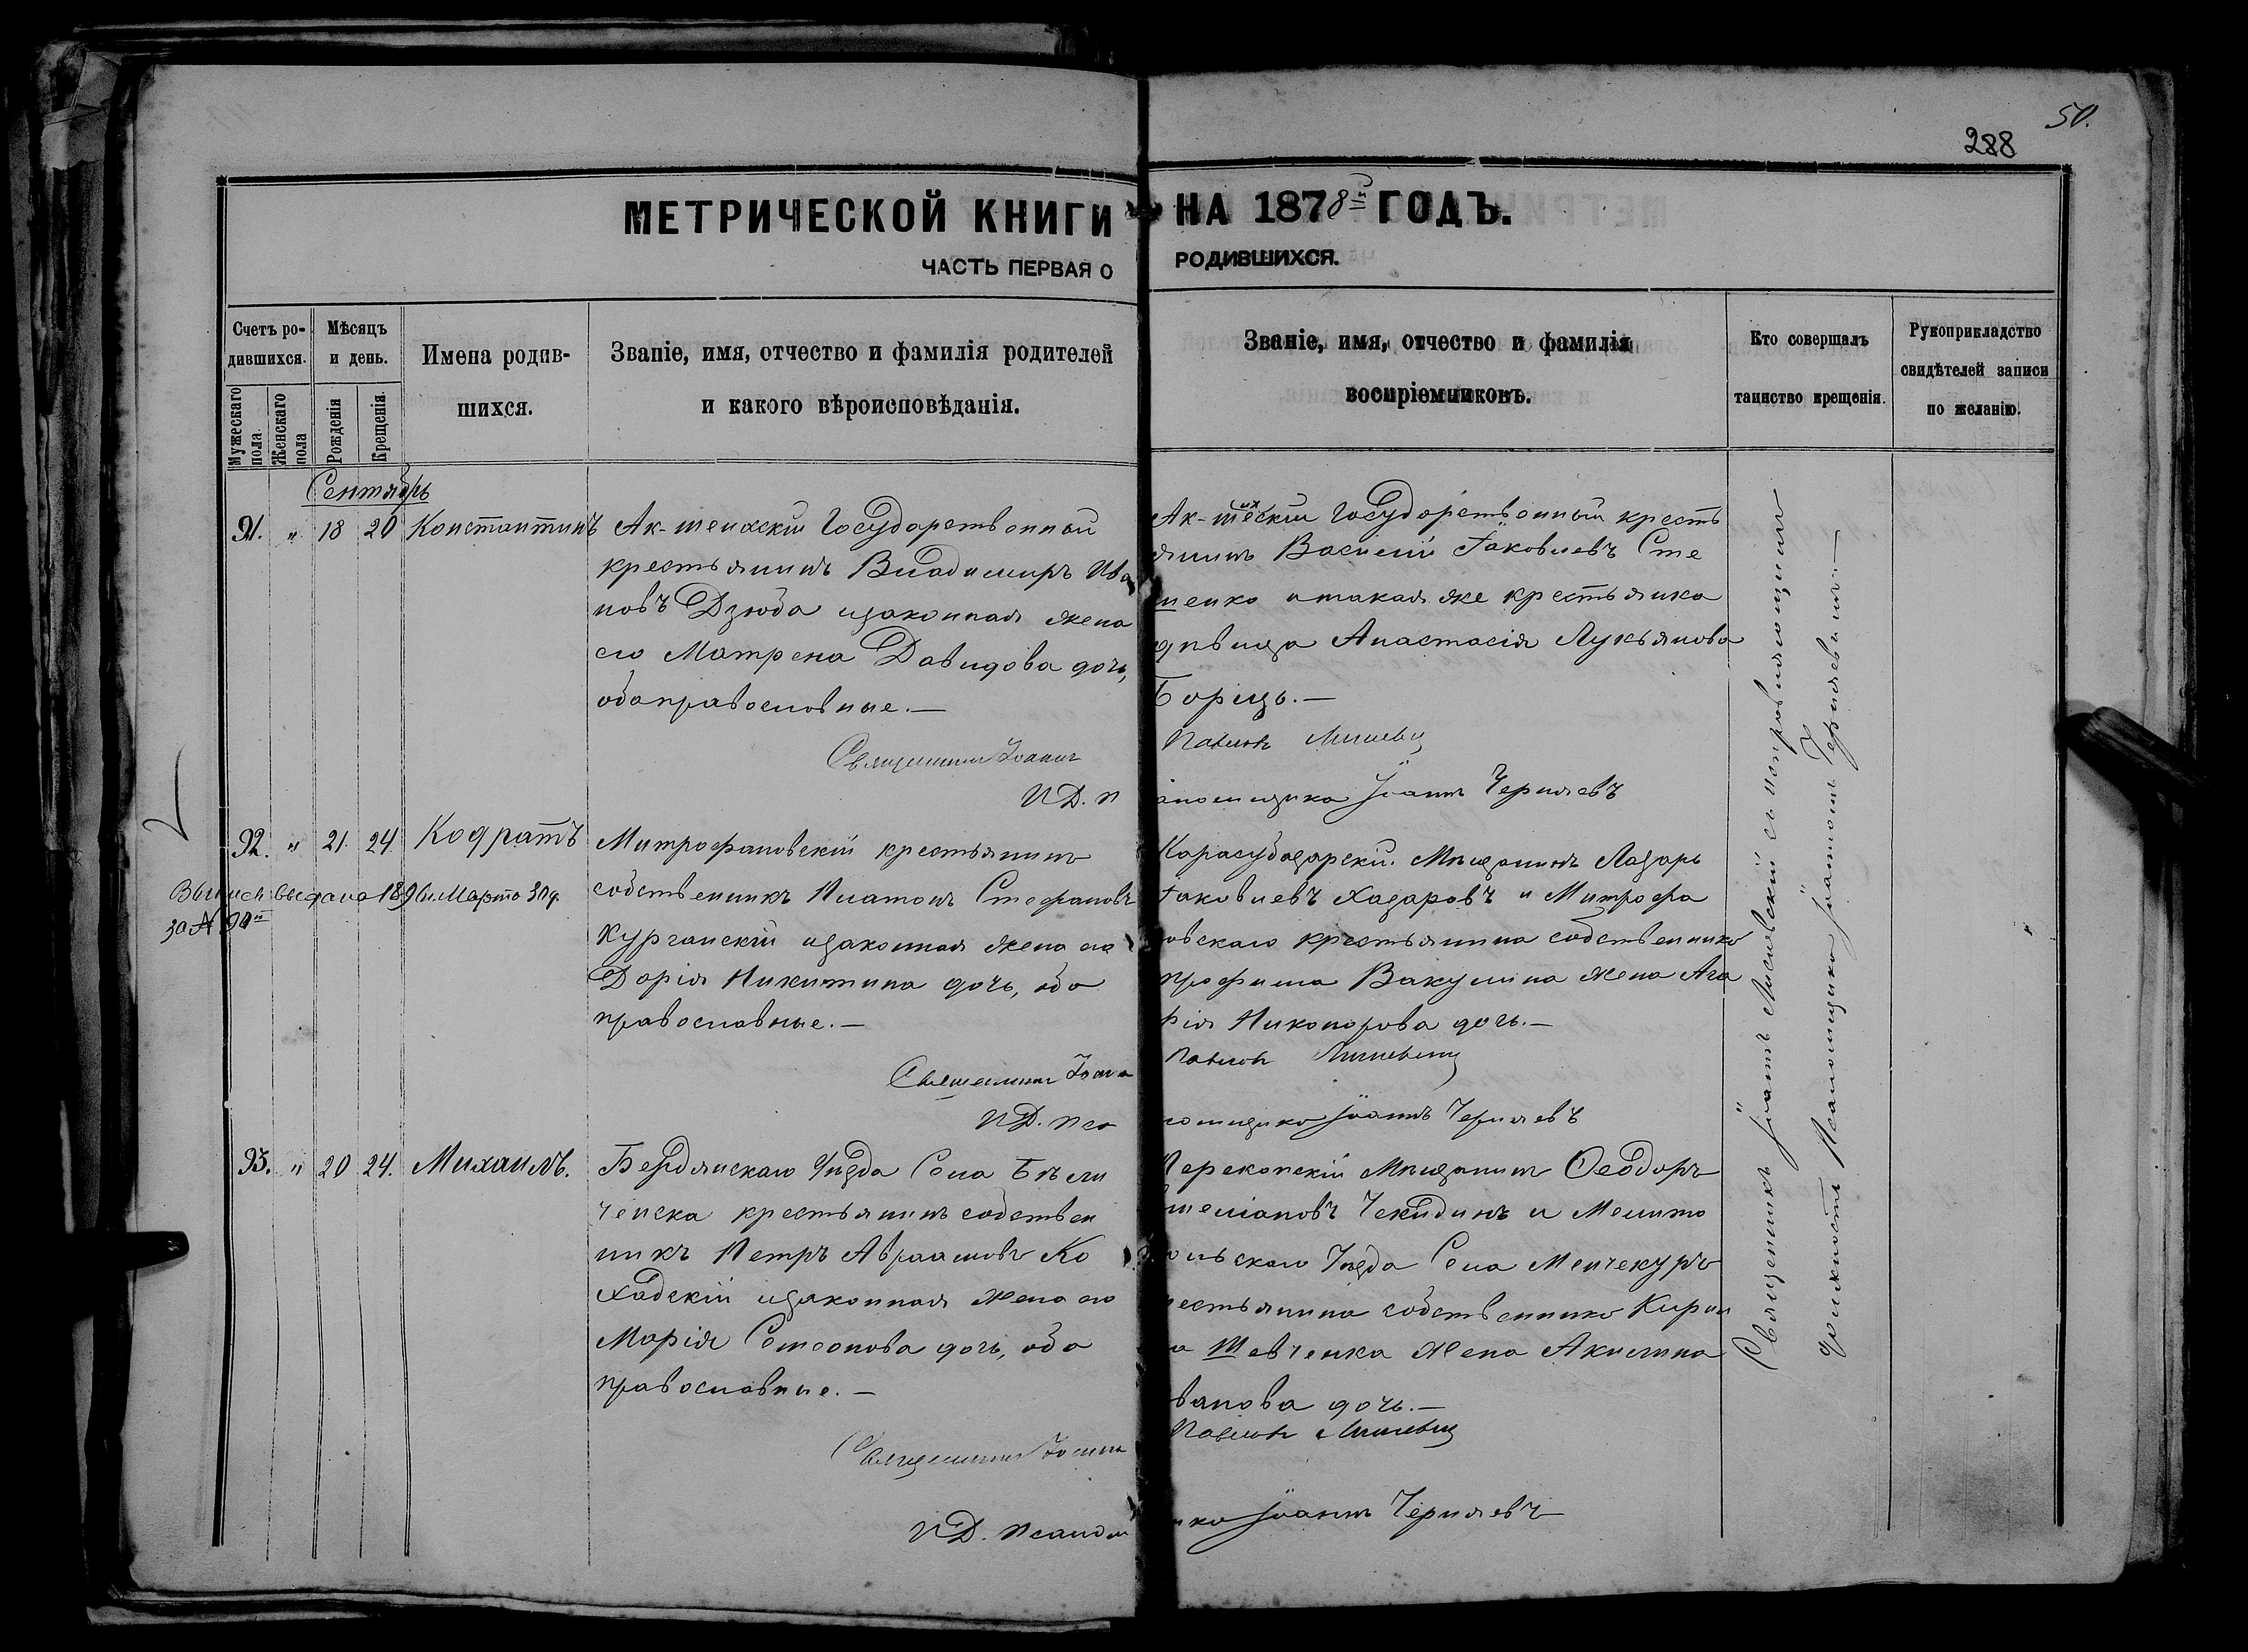 50.
288
МЕТРИЧЕСКОЙ КНИГИ НА 1878й ГОДЪ.
ЧАСТЬ ПЕРВАЯ О РОДИВШИХСЯ.
Счетъ ро-
дившихся.
Мужескаго пола
Женскаго пола
Мѣсяцъ
и день.
Рожденія
Крещенія.
Имена родив-
шихся.
Званіе, имя, отчество и фамилія родителей
и какого вѣроисповѣданія.
Званіе, имя, отчество и фамилія
воспріемниковъ.
Кто совершалъ
таинство крещенія.
Рукоприкладство
свидѣтелей записи
по желанію.
Сентябрь
91. " 18 20 Константинъ
Государственный
крестьянинъ Владимиръ Ива
новъ Дзюба изаконная жена
его Матрена Давидова дочь,
обаправославные.—
Священникъ Іоаннъ
И.Д. п
Государственный кресть
янинъ Василій Іаковлевъ Сте
ценко итакая же крестьянка
дѣвица Анастасія Лукьянова
Борецъ.—
аломщика Іоаннъ Черняевъ
92. " 21. 24 Кодратъ
Митрофановскій крестьянинъ
собственникъ Платонъ Стефановъ
Курганскій изаконная жена его
Дарія Никитина дочь, оба
православные.—
Священникъ Іоанн
И.Д. Пса
Карасубазарскій Мѣщанинъ Лазарь
Іаковлевъ Хазаровъ и Митрофа
овскаго крестьянина собственника
Трофима Вакулина жена Ага
фія Никонорова дочь.—
ломщика Іоаннъ Черняевъ
выдана 1896 г. Марта 30 д.
за № 90м
93. " 20 24. Михаилъ.
Бердянскаго Уѣзда Села
крестьянинъ собствен
никъ Петръ Авраамовъ Ко
хадскій изаконная жена его
Марія Семеонова дочь, оба
православные.—
Священникъ Іоанн
И.Д. Псалом
Перекопскій Мѣщанинъ Феодоръ
и Мелито
польскаго Уѣзда Села Менчекуръ
рестьянина собственника Кирил
а Шевченка жена Акилина
ванова дочь.—
ика Іоаннъ Черняевъ
Священникъ Іоаннъ съ исправляющимъ
должность Псаломщика Іоанномъ Черняевымъ.—